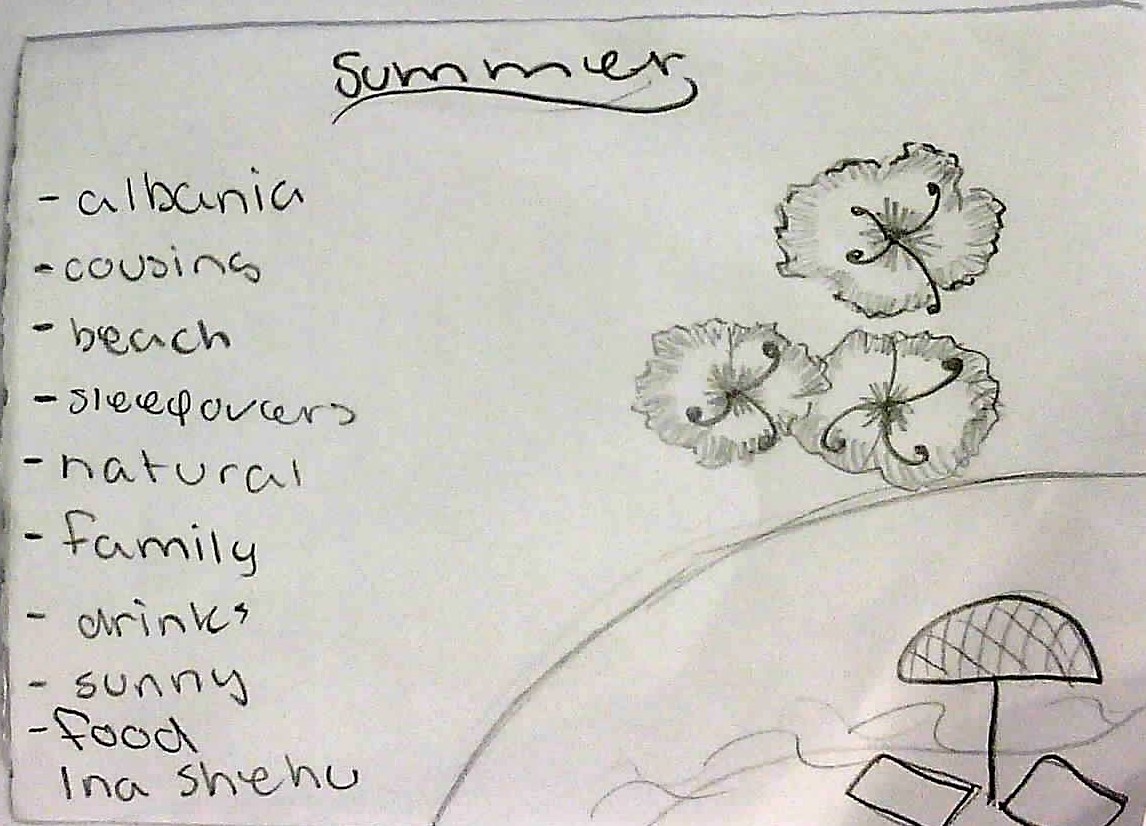 Summer
- albania
- cousins
- beach
- sleepovers
- natural
- family
- drinks
- sunny
- food
Ina Shehu